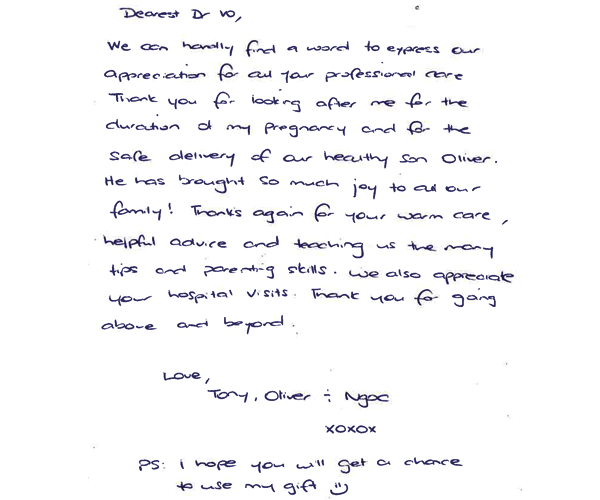 Dearest Dr Vo,
We can hardly find a word to express our
appreciation for all your professional care
Thank you for looking after me for the
duration of my pregnancy and for the
safe delivery of our healthy son Oliver.
He has brought so much joy to all our
family! Thanks again for your warm care,
helpful advice and teaching us the many
tips and parenting skills. We also appreciate
your hospital visits. Thank you for going
above and beyond.
Love,
Tony, Oliver & Ngoc
xoxox
PS: I hope you will get a chance
to use my gift :)